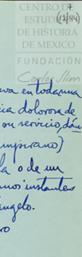 CENTRO DE
ESTUDIOS
DE HISTORIA
DE MEXICO
FUNDACIÓN
Carlos Slim
va en toda una
ica dolorosa de
ou servicio, dán
imprimano)
la o de un
mos instantes
angelo.
ro